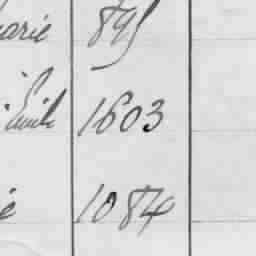 arie 895
Emile 1603
e 1084